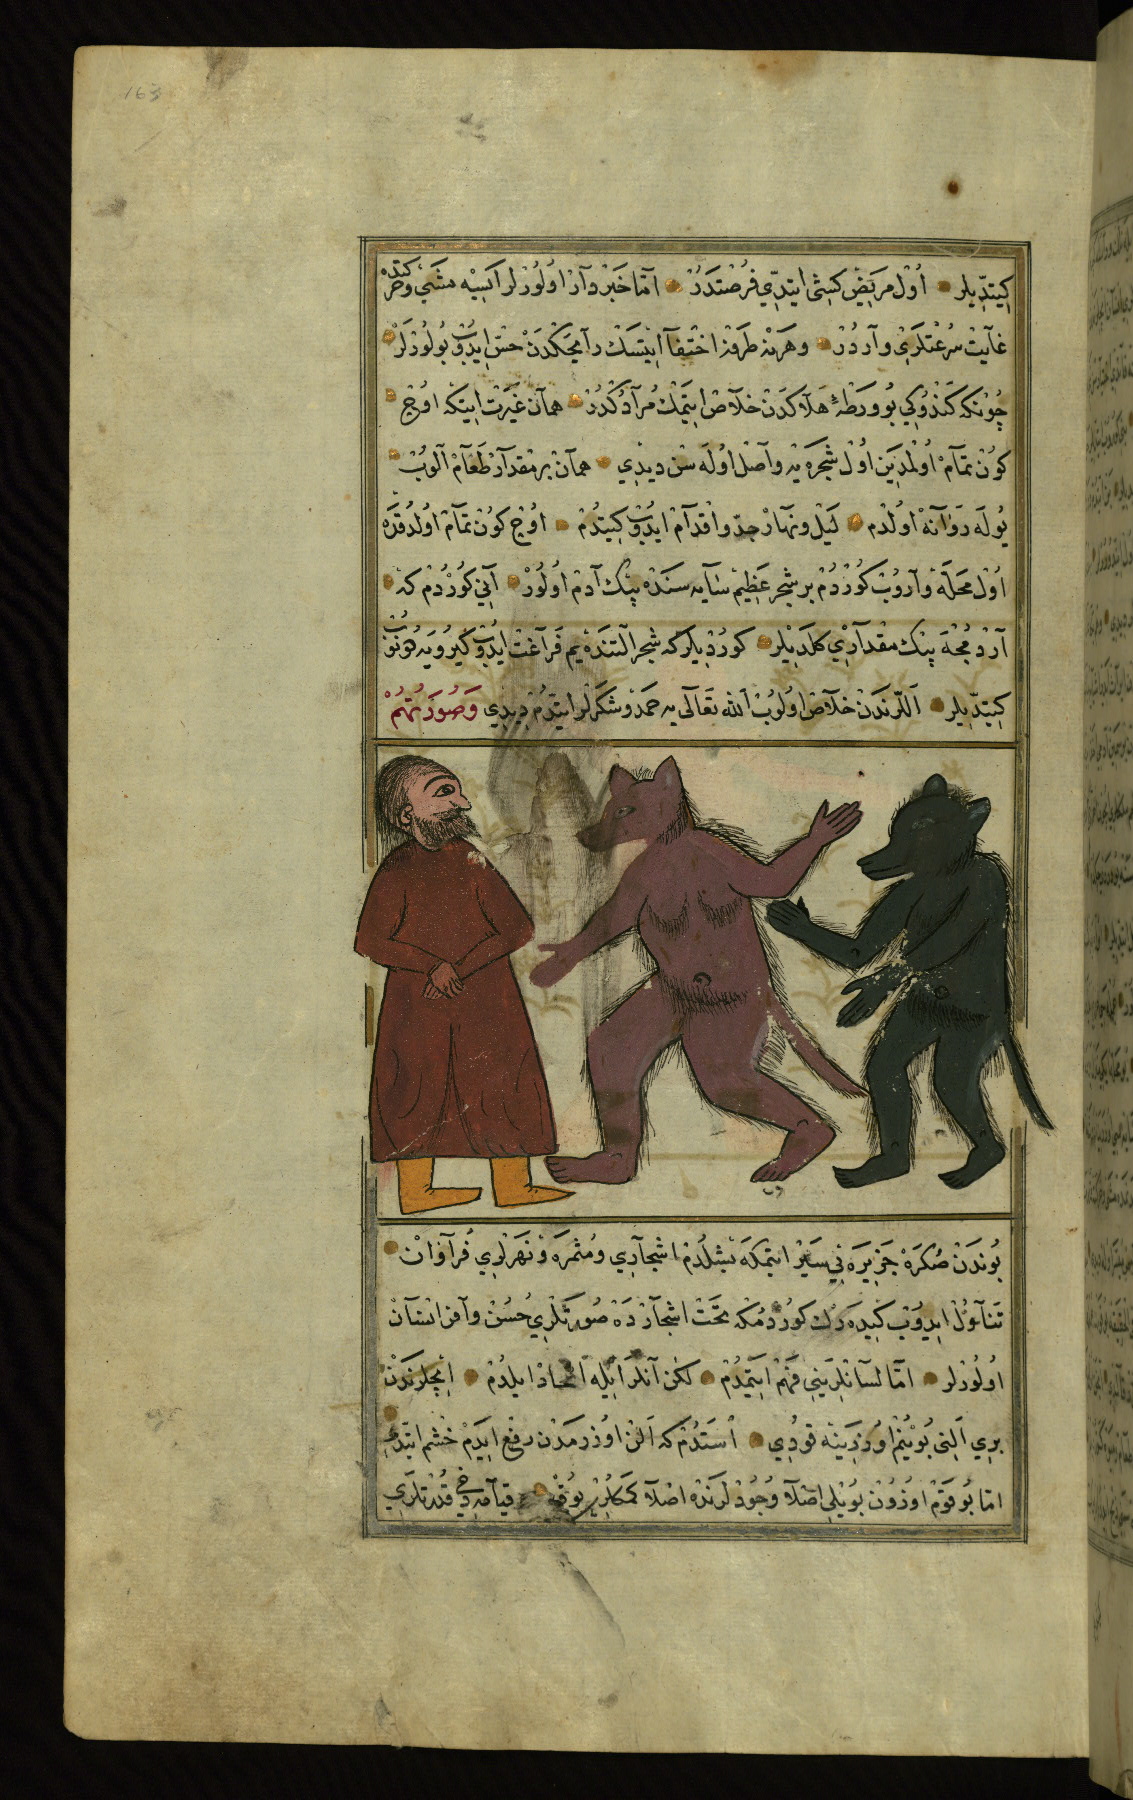 163
كيتديلر اول مريض كشى ايتدى فرصتدر اما خبردار اولوزلر اكسيه مشى و حركتده
غايت سرعتلرى واردر و هر نه طرفه اختفا ايتسك رايحه كدن حس ايدوب بولورلر
چونكه كندوكى بو ورطه هلاكدن خلاص ايتمك مرادكدر همان غيرت ايتكه اوج
كون تمام اولمدين اول شجره يه واصل اوله سن ديدى همان بر مقدار طعام الوب
يوله روانه اولدم ليل و نهار جد و اقدام ايدوب كيتدم اوج كون تمام اولدقده
اول محله واروب كوردم بر شجر عظيم سايه سنده بيك آدم اولور آنى كوردم كه
آردمجه بيك مقدارى كلديلر كورديلر كه شجر التنده يم فراغت ايدوب كيرويه دونوب
كيتديلر اللرندن خلاص اولوب الله تعالى يه حمد و شكرلر ايتدم ديدى وصورتهم
بوندن صكره جزيره يى سير ايتمكه بشلدم اشجارى و مثمره و نهرلرى فراوان
تناول ايدوب كيده رك كوردمكه تحت اشجارده صورتلرى حسن وآفر انسان
اولورلر اما لسانلرينى فهم ايتمدم لكن آنلر ايله اتحاد ايلدم ايچلرندن
برى الني بوينم اوزرينه قودى استدم كه الن اوزرمدن رفع ايدم خشم ايتدى
اما بو قوم اوزون بويلى اصلا وجودلرنده اصلا كمكلرى يوقدر قيامه دخى قدرتلرى